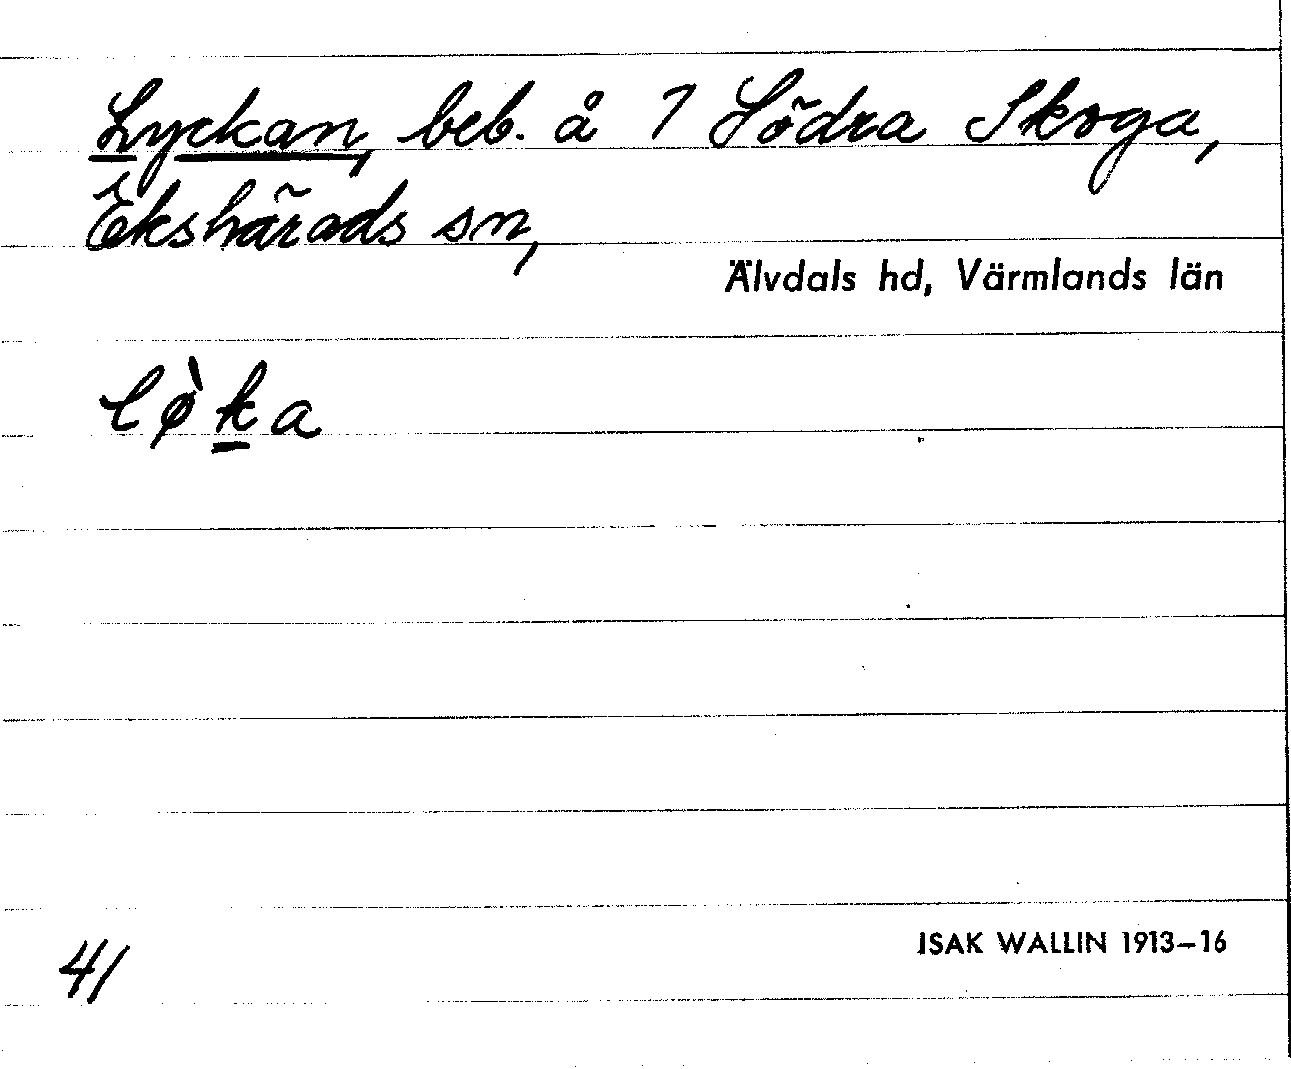 Lyckan, beb. å 7 Södra Skoga,
Ekshärads sn,
Älvdals hd, Värmlands län
lø̀ḵa
ISAK WALLIN 1913–16
41